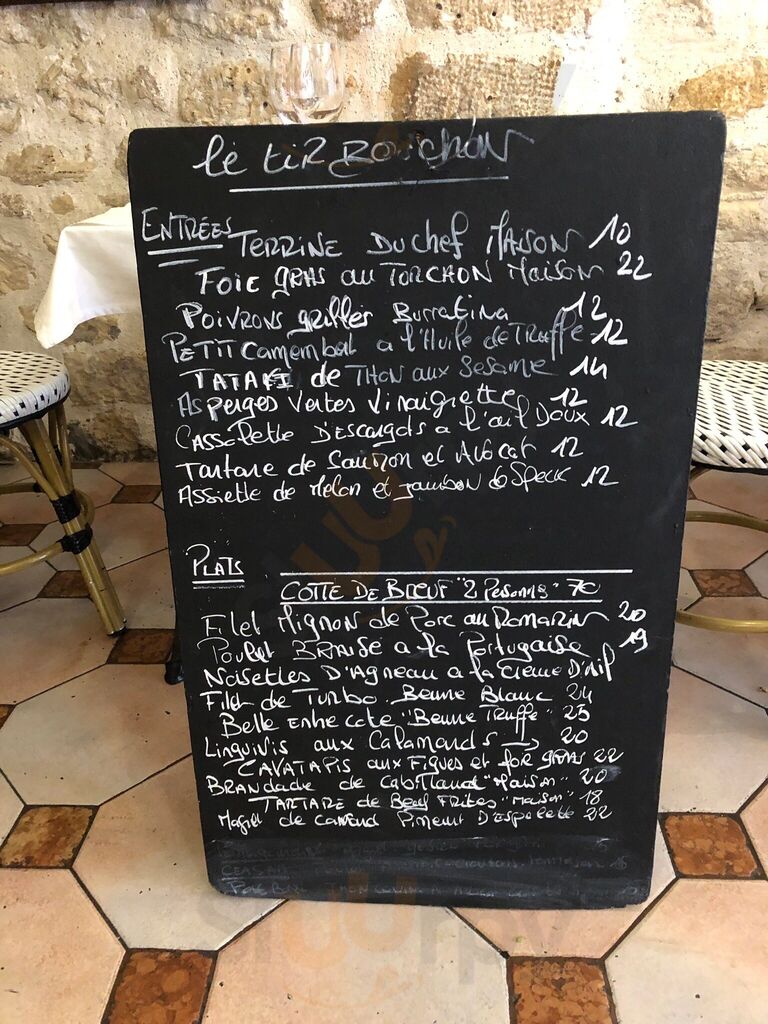 le tiRBOuChON
ENTRÉES
TERRINE Du chef MAISON 10
FOIE GRAS au TORCHON Maison 22
POIVRONS grillés Burratina 12
PETIT Camembal a l'Huile de Truffe 12
TATAKI de THON aux Sesame 14
Asperges Vertes Vinaigrette 12
CASSOlette D'Escargots a l'ail DOUX 12
Tartare de Saumon et Avocat 12
Assiette de Melon et jambon de Speck 12
PLATS
COTTE DE BOEUF "2 Personnes" 70
Filet Mignon de Porc au Romarin 20
Poulet BRAISÉ a la Portugaise 19
Noisettes D'Agneau a la Creme D'Ail
Filet de TURBO Beurre Blanc 24
Belle Entrecote "Beurre Truffe" 25
Linguinis aux Calamards 20
CAVATAPIS aux Figues et foie GRAS 22
BRANDADE de Cabillaud "Maison" 20
TARTARE de Boeuf FRITES "Maison" 18
Magret de canard Piment D'Espelette 22
CEASAR